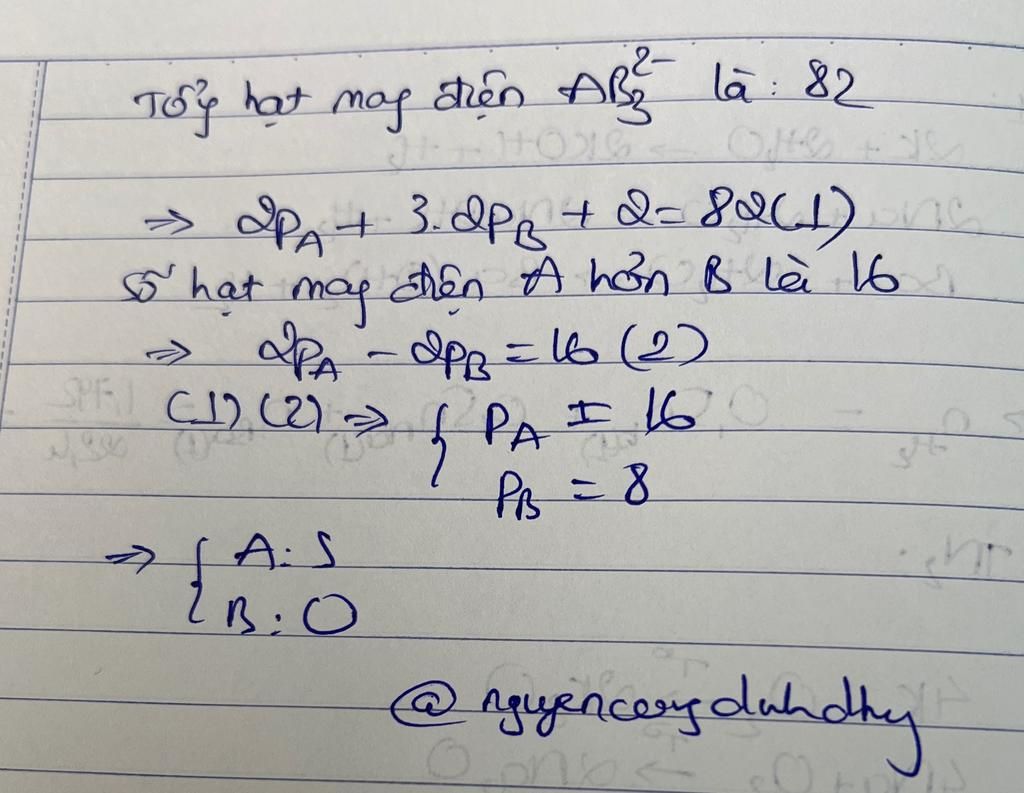 Tổng hạt mang điện AB₃²⁻ là: 82
=> 2P_A + 3.2P_B + 2 = 82 (1)
Số hạt mang điện A hơn B là 16
=> 2P_A - 2P_B = 16 (2)
(1) (2) => { P_A = 16
P_B = 8
=> { A: S
B: O
@nguyencongdinhdhy